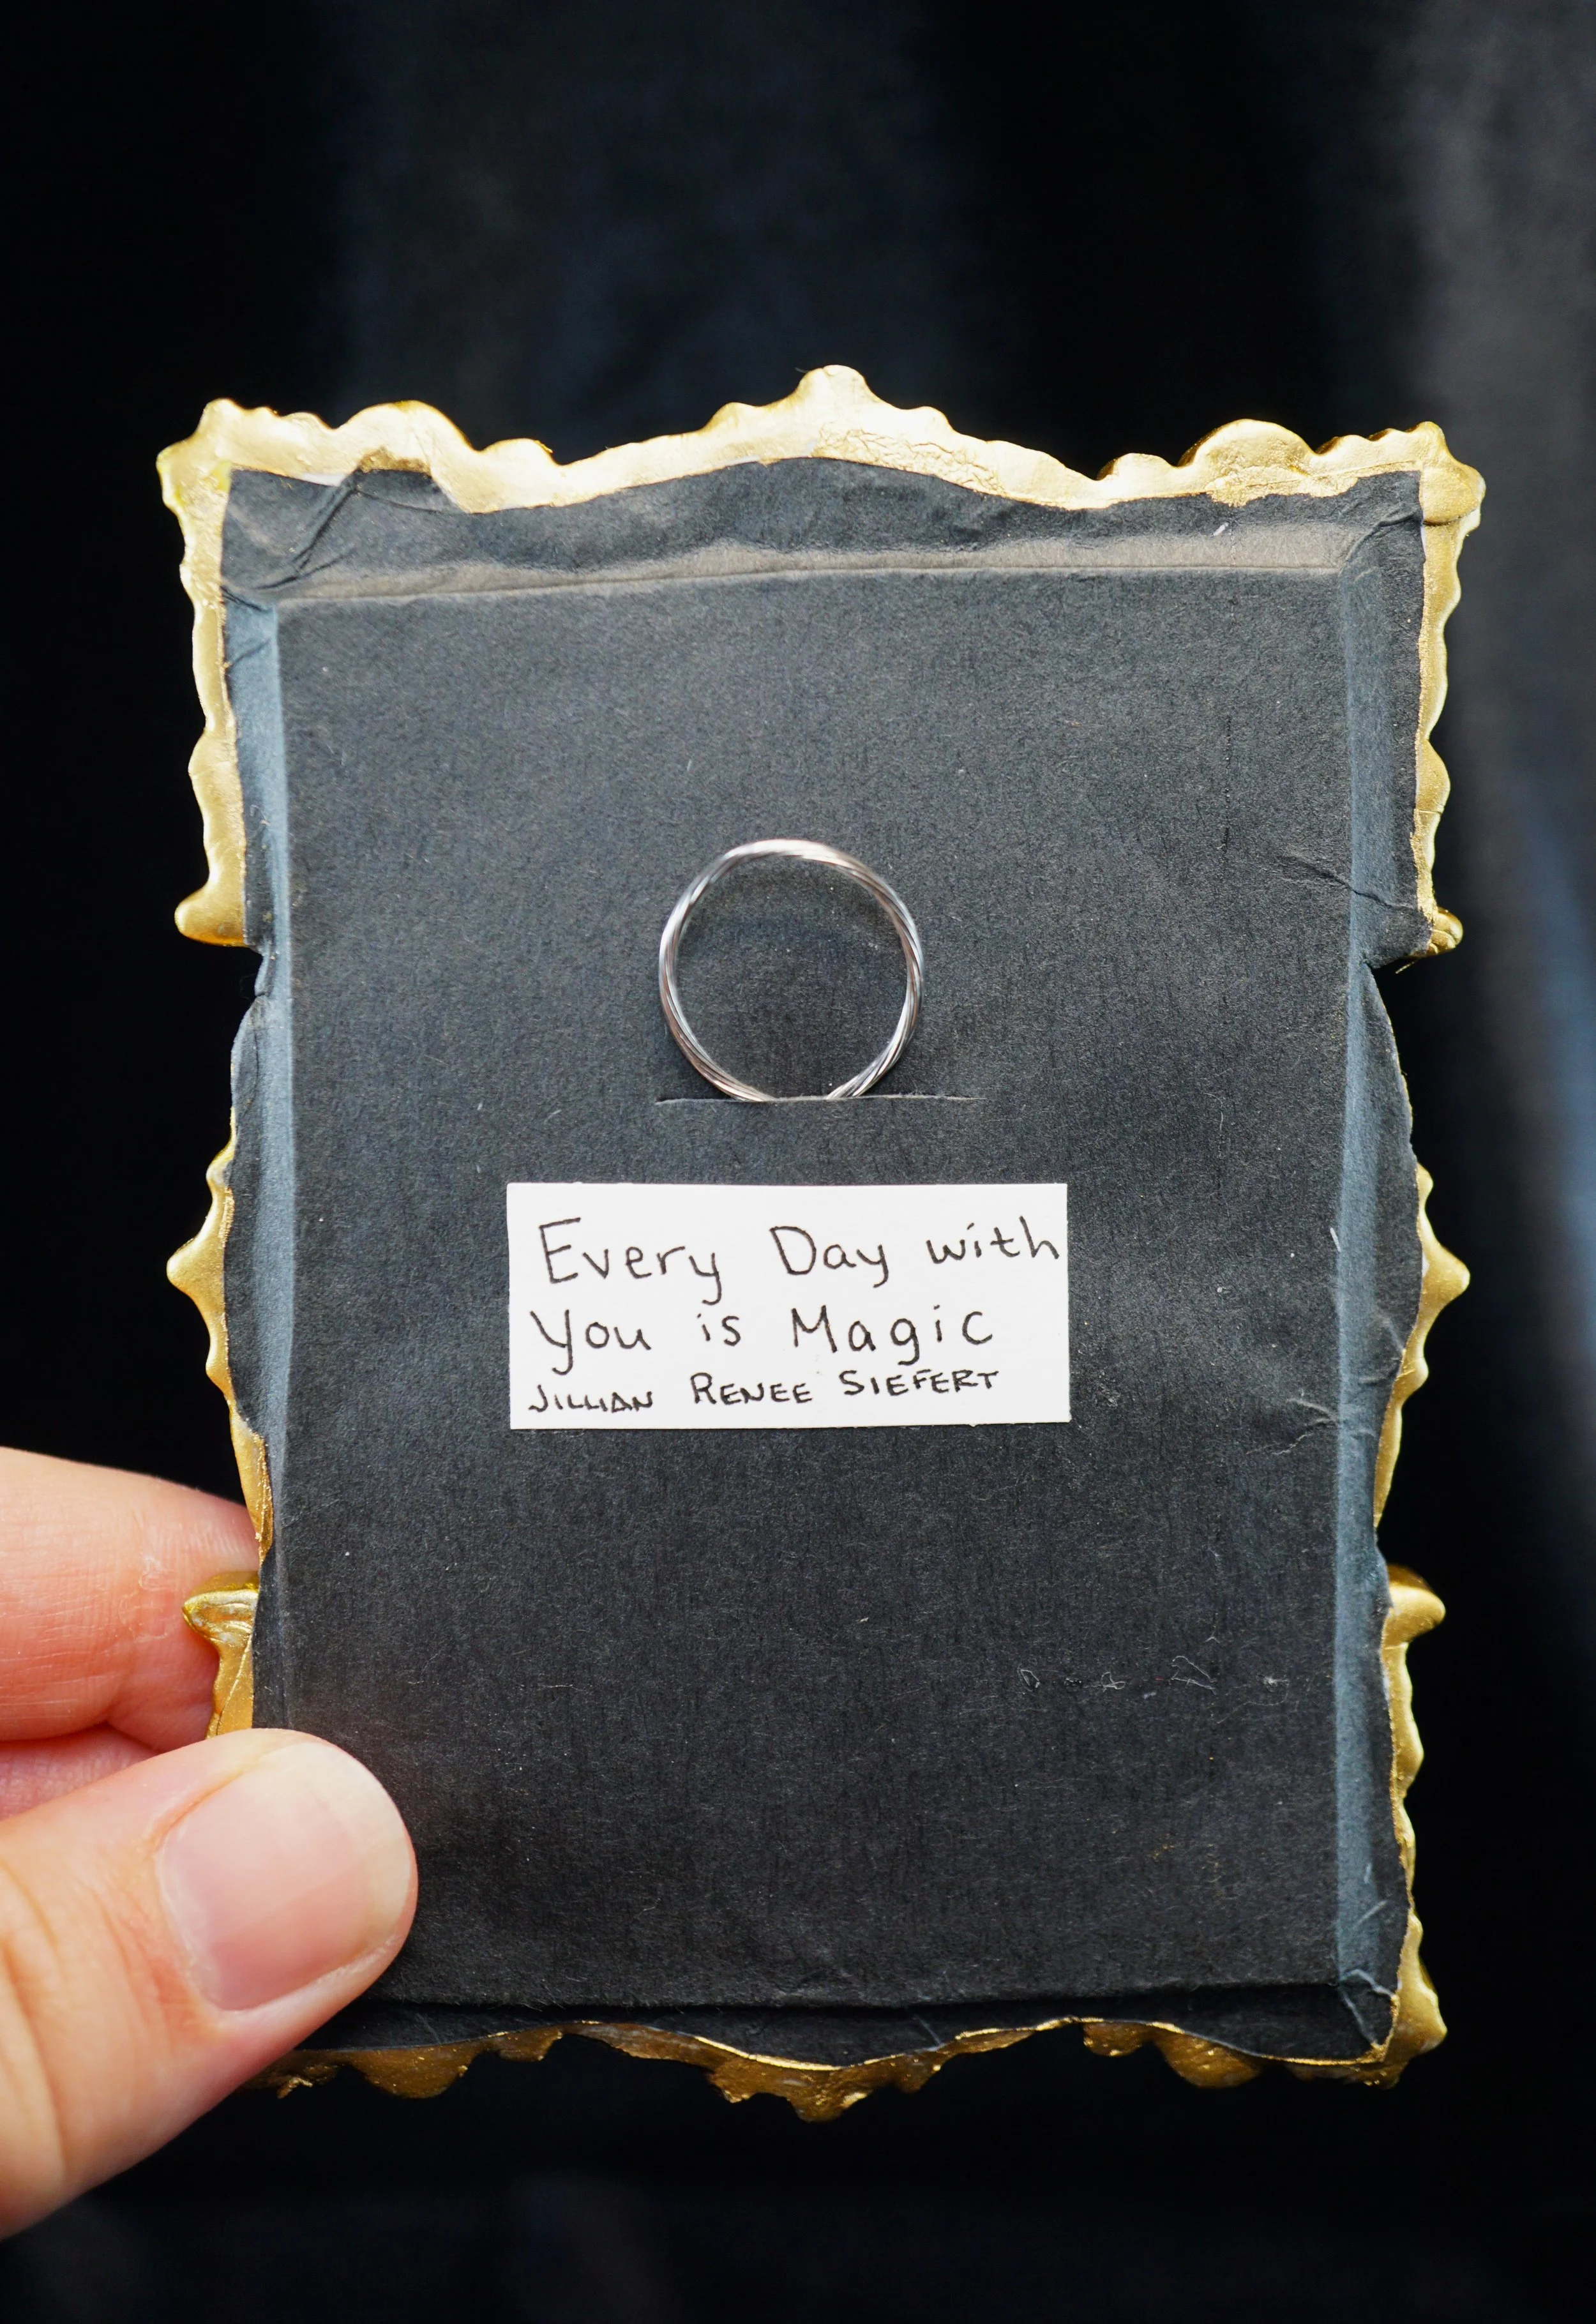 Every Day with
You is Magic
JILLIAN RENEE SIEFERT